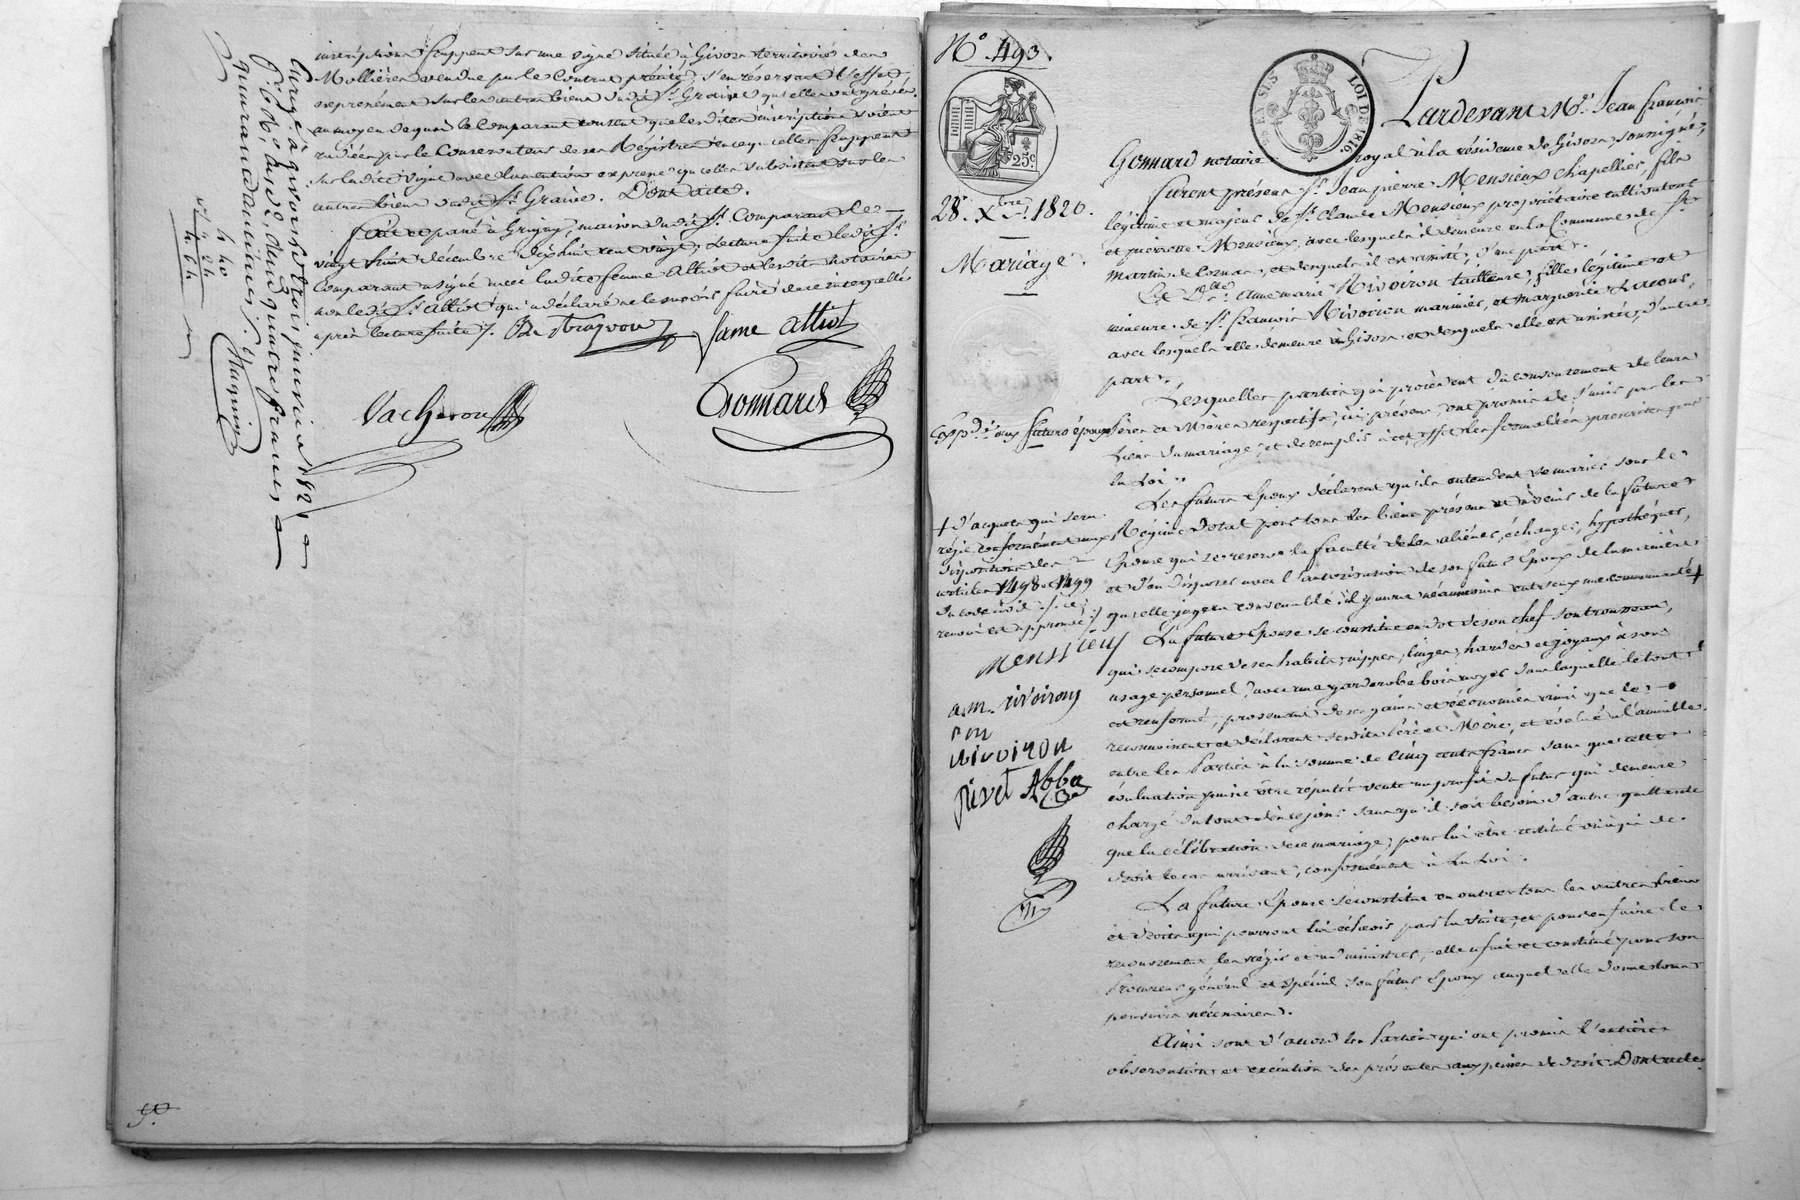 inscriptions frappent sur une vigne située à Givors territoire des
Mollières vendue par le Contrat précité, s'en réservant l'effet
sur les autres biens dudit Sr. Graive qu'elles ont grévés.
au moyen de quoi le Comparant consent que lesdites inscriptions soient
radiées par le Conservateur de ses Régistres en ce qu'elles frappent
sur ladite vigne avec mention expresse qu'elles subsistent sur les
autres biens dudit Sr. Graive. Dont acte.
fait et passé à Grigny, maison dudit Sr. Comparant le
vingt huit décembre dix huit cent vingt, Lecture faite ledit Sr.
Comparant a signé avec ladite femme Alliot et ledit notaire
non ledit Sr. Alliot qui a déclaré ne le savoir faire de ce interpellé
après lecture faite ./.
fame alliot
Vacheron
Gonnard
Enrgé à givors le trois janvier 1821
quarante quatre francs
quarante centimes ./.
44
4 40
50.
N° 493.
25c.
EN SUS
LOI DE 1816.
28 Xbre 1820.
Mariage.
Pardevant Me. Jean françois
Gonnard notaire royal à la résidence de Givors soussigné,
furent présens Sr. Jean pierre Mensieux chapellier, fils
légitime et majeur de Sr. Claude Mensieux propriétaire cultivateur
et pierrette Mensieux, avec lesquels il demeure en la Commune de St.
martin de Cornas, et desquels il est assisté, d'une part.
Et Dlle. Anne marie Rivoiron tailleuse, fille légitime et
mineure de Sr. françois Rivoiron marinier, et marguerite Lacour,
avec lesquels elle demeure à Givors et desquels elle est assistée, d'autre
part.
Lesquelles parties qui procèdent du consentement de leurs
Expé. aux futurs époux
Pères et Mères respectifs, ici présens, ont promis de s'unir par les
liens du mariage, et de remplir à cet effet les formalités prescrites par
la Loi.
Les futurs Epoux déclarent qu'ils entendent se marier sous le
Régime dotal pour tous les biens présens et à venir de la future
Epouse qui se réserve la faculté de les aliéner, échanger, hypothéquer,
et d'en disposer avec l'autorisation de son futur Epoux de la manière
qu'elle jugera convenable ; il y aura néanmoins entr'eux une communauté +
+ d'acquets qui sera
régie conformément aux
dispositions des
articles 1498 et 1499
du code civil ./. ce
renvoi est approuvé ./.
Menssieux
a.m. rivoirons
rivoiron
rivet Abba
La future Epouse se constitue en dot de son chef son trousseau,
qui se compose de ses habits, nippes, linges, hardes et joyaux à son
usage personnel, avec une garderobe bois noyer dans laquelle le tout
est renfermé, provenant de ses gains et économies ainsi que le
reconnoissent et déclarent sesdits Père et Mère, et évalué à l'amiable
entre les Parties à la somme de Cinq cents francs sans que cette
évaluation puisse être réputée vente au profit du futur qui demeure
chargé du tout dès ce jour sans qu'il soit besoin d'autre quittance
que la célébration de ce mariage, pour lui être restitué où à qui de
droit le cas arrivant, conformément à la Loi.
La future Epouse se constitue en outre tous les autres biens
et droits qui pourront lui échoir par la suite, et pour en faire le
recouvrement les régir et administrer, elle a fait et constitué pour son
Procureur général et spécial son futur Epoux auquel elle donne tous
pouvoirs nécessaires.
Ainsi sont d'accord les Parties qui ont promis l'entière
observation et exécution des présentes aux peines de droit. Dont acte